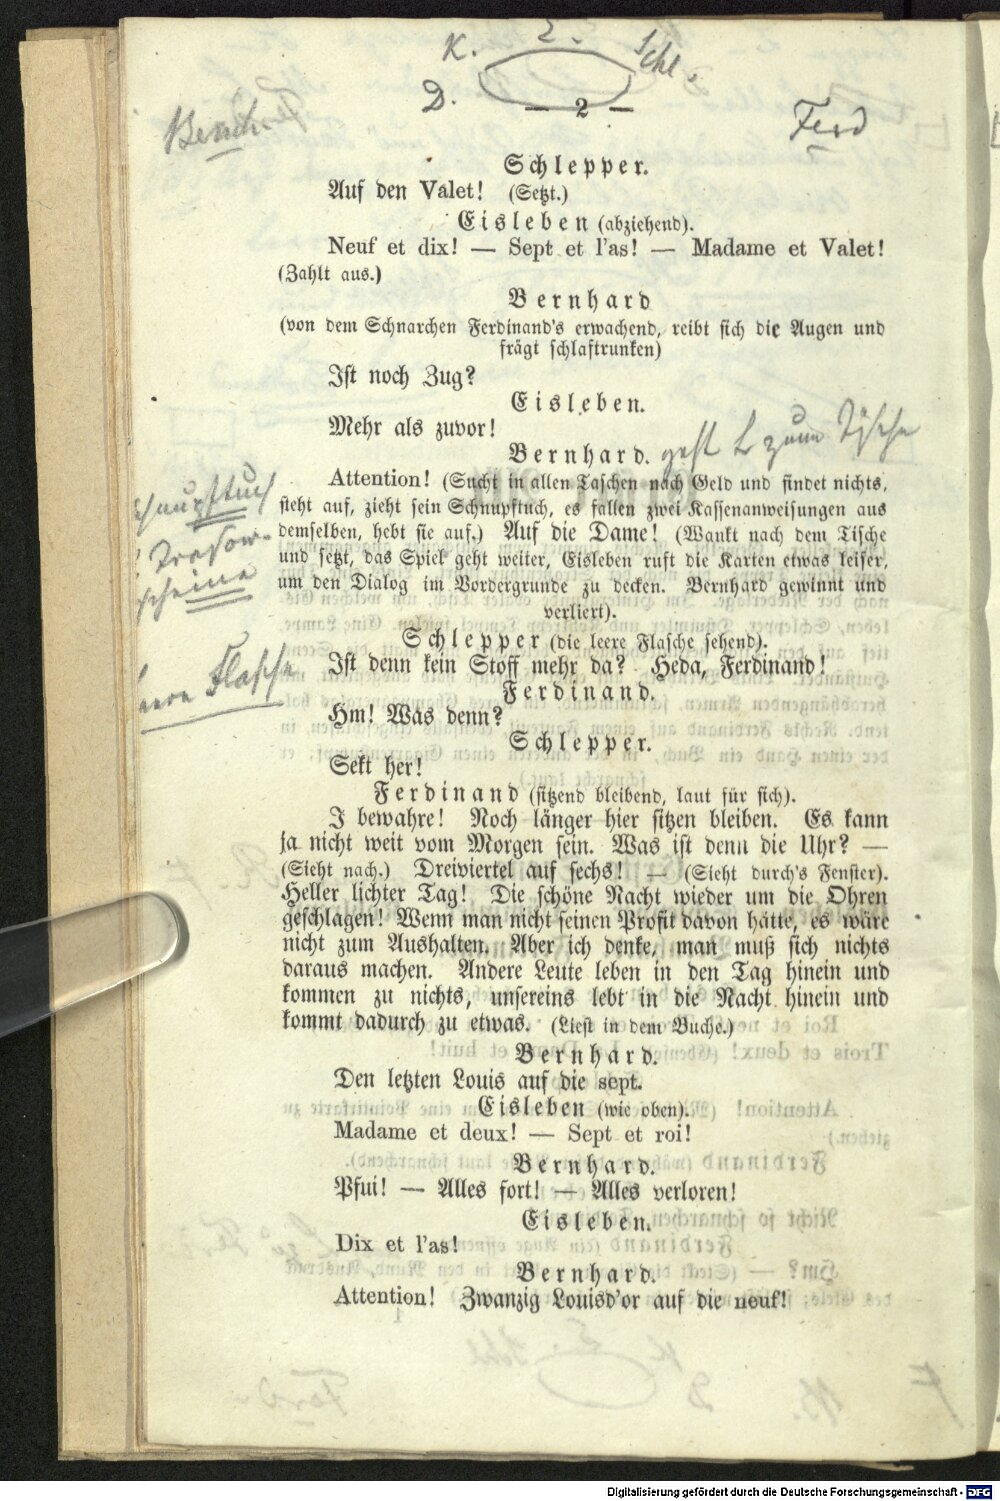 K. E. Schl.
D.
— 2 —
Bernh. Ferd
Schlepper.
Auf den Valet! (Setzt.)
Eisleben (abziehend).
Neuf et dix! — Sept et l'as! — Madame et Valet!
(Zahlt aus.)
Bernhard
(von dem Schnarchen Ferdinand's erwachend, reibt sich die Augen und
frägt schlaftrunken)
Ist noch Zug?
Eisleben.
Mehr als zuvor!
Bernhard. geht L zum Tische
Attention! (Sucht in allen Taschen nach Geld und findet nichts,
steht auf, zieht sein Schnupftuch, es fallen zwei Kassenanweisungen aus
demselben, hebt sie auf.) Auf die Dame! (Wankt nach dem Tische
und setzt, das Spiel geht weiter, Eisleben ruft die Karten etwas leiser,
um den Dialog im Vordergrunde zu decken. Bernhard gewinnt und
verliert).
chnupftuch
Tresor-
scheine
Schlepper (die leere Flasche sehend).
Ist denn kein Stoff mehr da? Heda, Ferdinand!
leere Flasche
Ferdinand.
Hm! Was denn?
Schlepper.
Sekt her!
Ferdinand (sitzend bleibend, laut für sich).
I bewahre! Noch länger hier sitzen bleiben. Es kann
ja nicht weit vom Morgen sein. Was ist denn die Uhr? —
(Sieht nach.) Dreiviertel auf sechs! — (Sieht durch's Fenster).
Heller lichter Tag! Die schöne Nacht wieder um die Ohren
geschlagen! Wenn man nicht seinen Profit davon hätte, es wäre
nicht zum Aushalten. Aber ich denke, man muß sich nichts
daraus machen. Andere Leute leben in den Tag hinein und
kommen zu nichts, unsereins lebt in die Nacht hinein und
kommt dadurch zu etwas. (Liest in dem Buche.)
Bernhard.
Den letzten Louis auf die sept.
Eisleben (wie oben).
Madame et deux! — Sept et roi!
Bernhard.
Pfui! — Alles fort! — Alles verloren!
Eisleben.
Dix et l'as!
Bernhard.
Attention! Zwanzig Louisd'or auf die neuf!
Digitalisierung gefördert durch die Deutsche Forschungsgemeinschaft - DFG